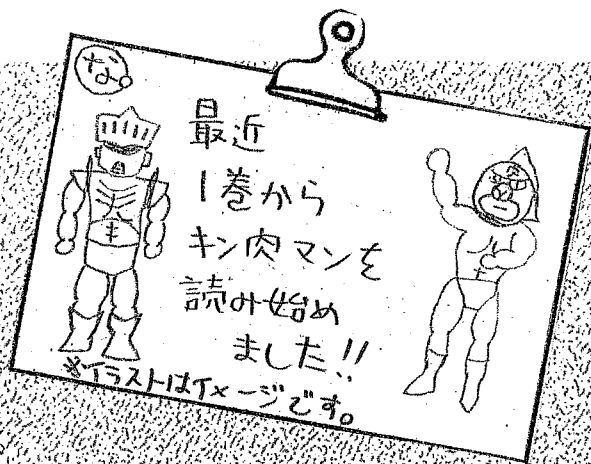 な。
最近
1巻から
キン肉マンを
読み始め
ました!!
※イラストはイメージです。